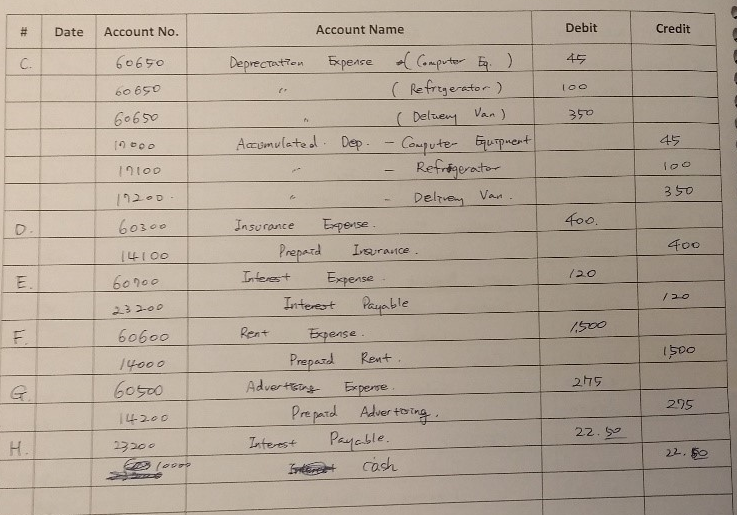 # Date Account No. Account Name Debit Credit
C. 60650 Depreciation Expense (Computer Eq.) 45
60650 " (Refrigerator) 100
60650 " (Delivery Van) 350
17000 Accumulated. Dep. - Computer Equipment 45
17100 " - Refrigerator 100
17200. " - Delivery Van. 350
D. 60300 Insurance Expense. 400.
14100 Prepaid Insurance. 400
E. 60700 Interest Expense 120
23200 Interest Payable 120
F. 60600 Rent Expense. 1,500
14000 Prepaid Rent. 1,500
G. 60500 Advertising Expense. 275
14200 Prepaid Advertising. 275
H. 23200 Interest Payable. 22.50
10000 Cash 22.50